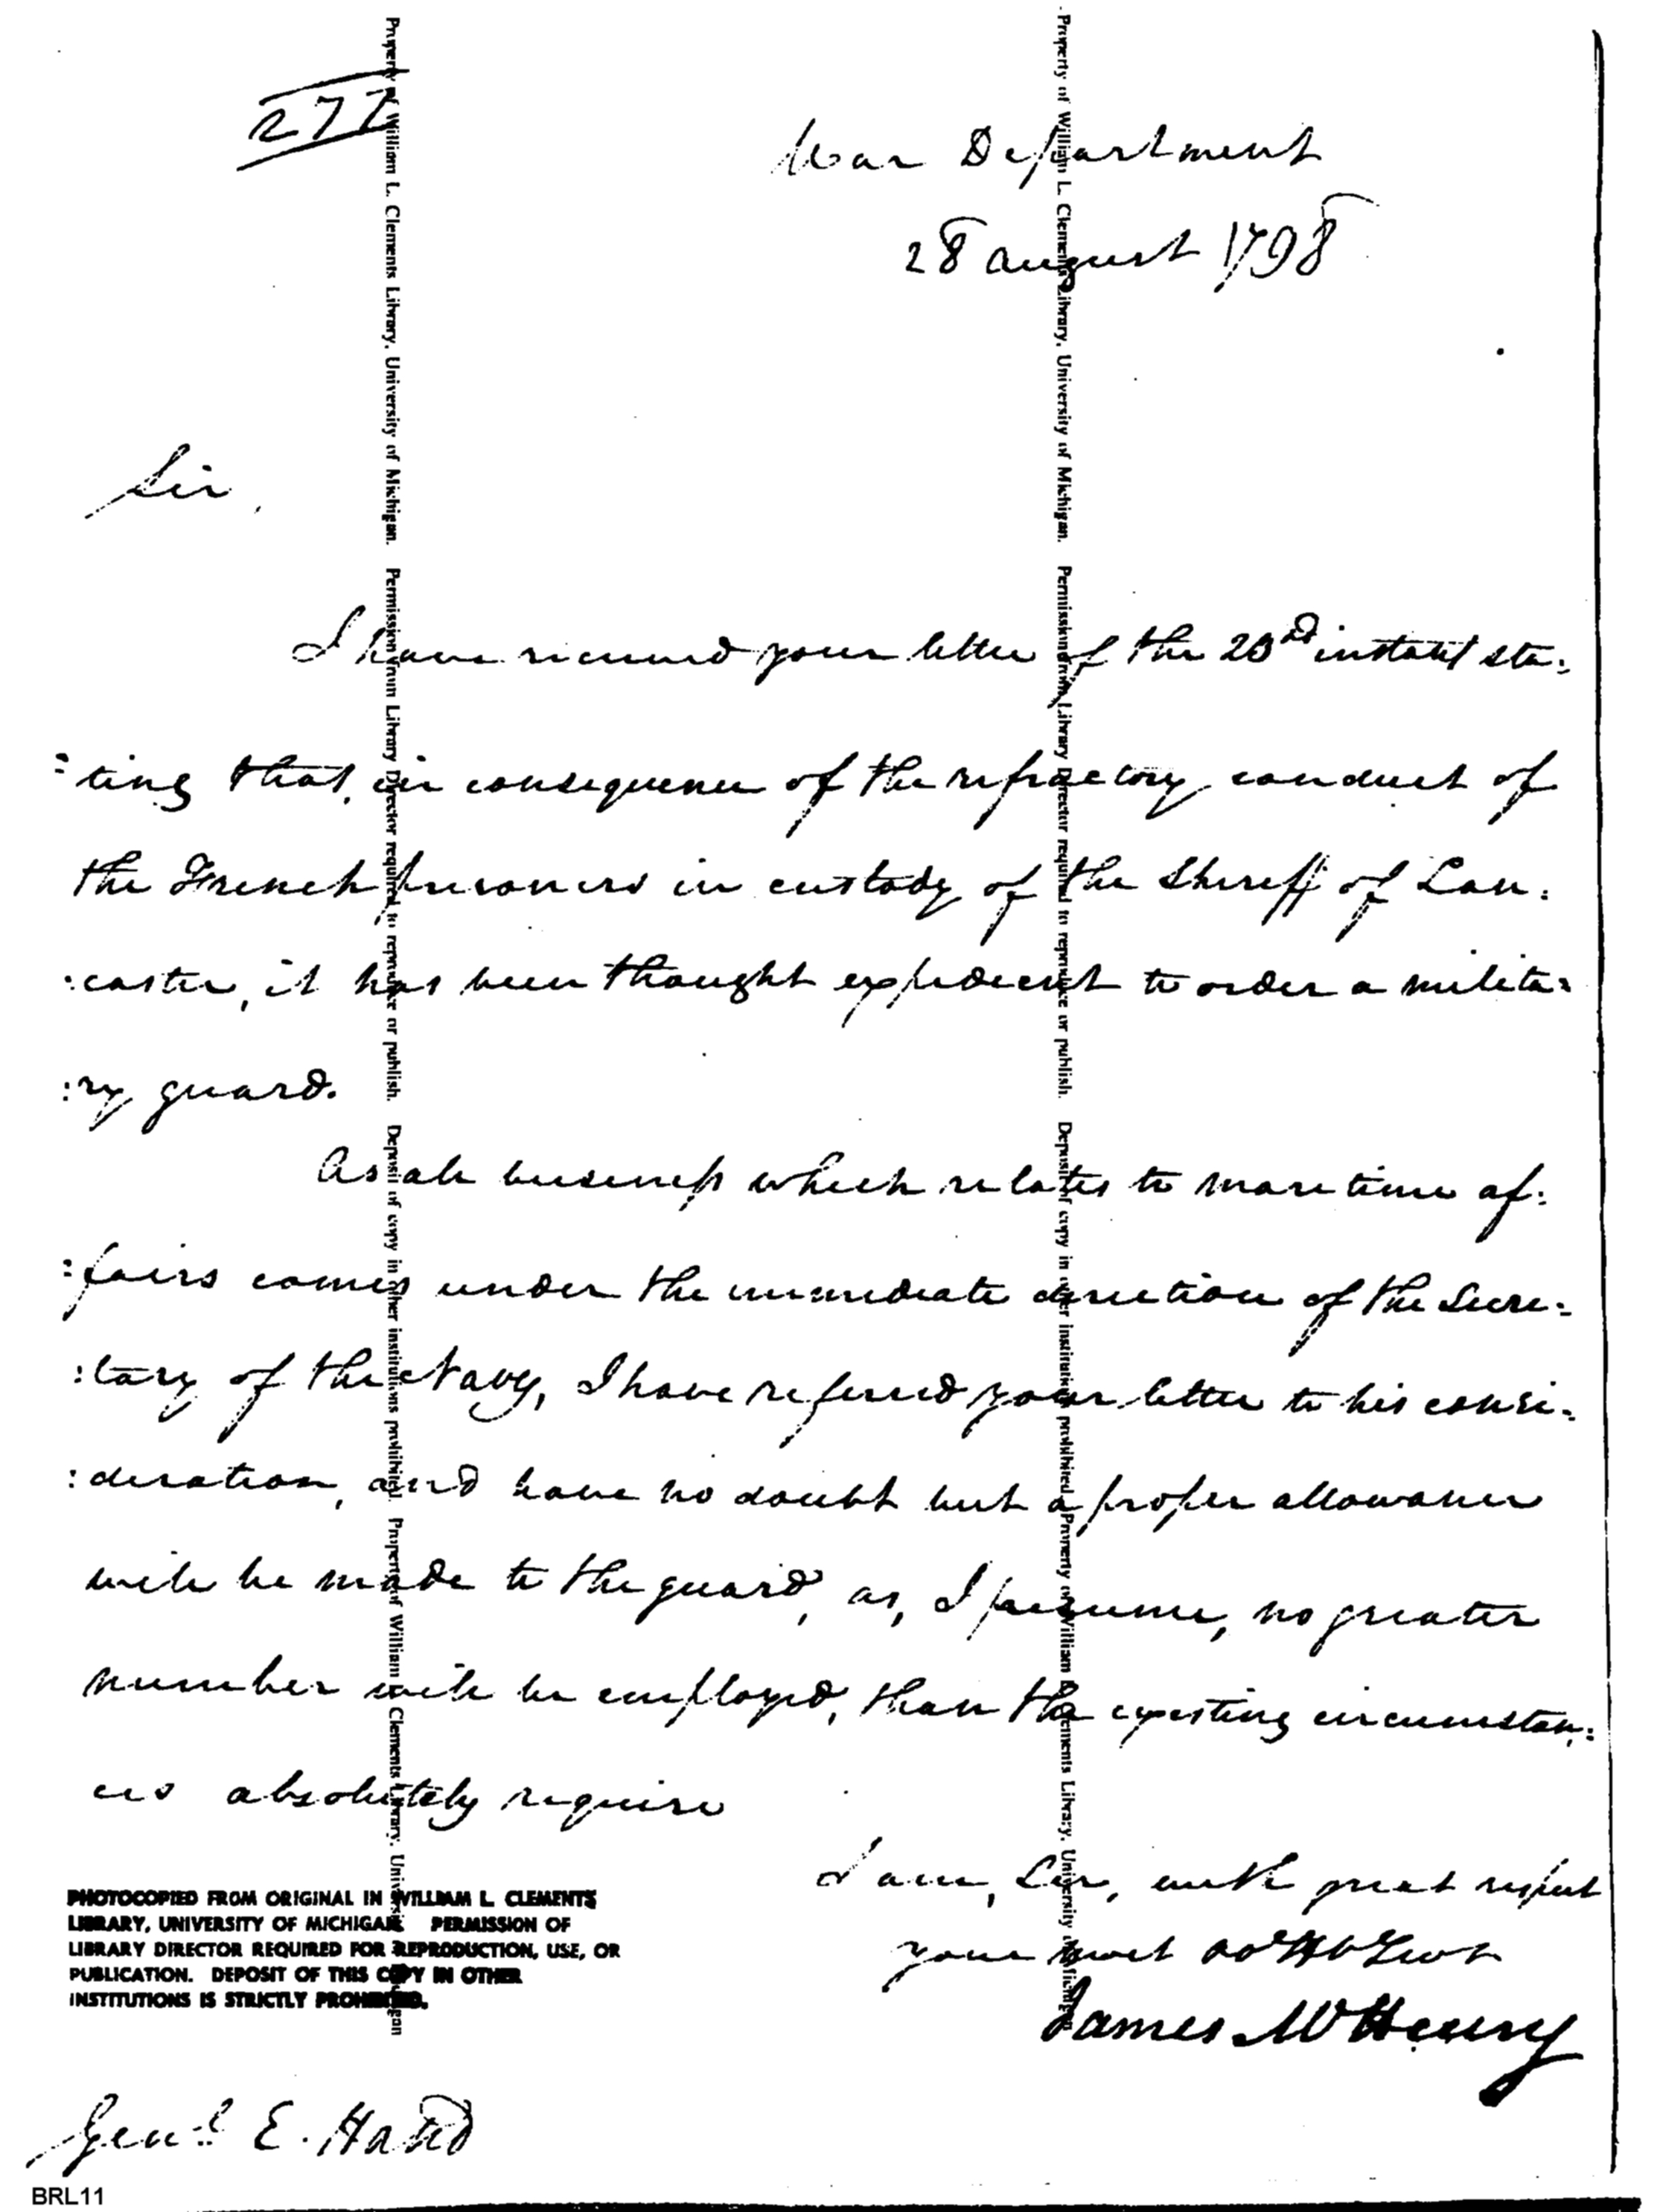 277
War Department
28 august 1798
Sir,
I have received your letter of the 23rd instant sta:
:ting that, in consequence of the refractory conduct of
the French prisoners in custody of the Sheriff of Lan:
:caster, it has been thought expedient to order a milita:
:ry guard.
As all business which relates to maritime af:
:fairs comes under the immediate direction of the Secre:
:tary of the Navy, I have referred your letter to his consi:
:deration, and have no doubt but a proper allowance
will be made to the guard, as, I presume, no greater
number will be employed, than the existing circumstan:
ces absolutely require
I am, Sir, with great respect
your most
James McHenry
Genl. E. Hand
PHOTOCOPIED FROM ORIGINAL IN WILLIAM L CLEMENTS
LIBRARY, UNIVERSITY OF MICHIGAN. PERMISSION OF
LIBRARY DIRECTOR REQUIRED FOR REPRODUCTION, USE, OR
PUBLICATION. DEPOSIT OF THIS COPY IN OTHER
INSTITUTIONS IS STRICTLY PROHIBITED.
BRL11
Property of William L. Clements Library, University of Michigan. Permission from Library Director required to reproduce or publish. Deposit of copy in other institutions prohibited. Property of William L. Clements Library, University of Michigan
Property of William L. Clements Library, University of Michigan. Permission from Library Director required to reproduce or publish. Deposit of copy in other institutions prohibited. Property of William L. Clements Library, University of Michigan